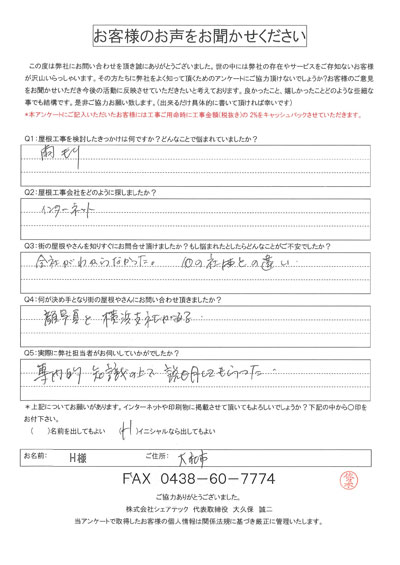 お客様のお声をお聞かせください
この度は弊社にお問い合わせを頂き誠にありがとうございました。世の中には弊社の存在やサービスをご存知ないお客様
が沢山いらっしゃいます。その方たちに弊社をよく知って頂くためのアンケートにご協力頂けないでしょうか?お客様のご意見
をお聞かせいただき今後の活動に反映させていただきたいと考えております。良かったこと、嬉しかったことどのような些細な
事でも結構です。是非ご協力お願い致します。(出来るだけ具体的に書いて頂ければ幸いです)
*本アンケートにご記入いただいたお客様には工事ご用命時に工事金額(税抜き)の2%をキャッシュバックさせていただきます。
Q1:屋根工事を検討したきっかけは何ですか?どんなことで悩まれていましたか?
雨もり
Q2:屋根工事会社をどのように探しましたか?
インターネット
Q3:街の屋根やさんを知りすぐにお問合せ頂けましたか?もし悩まれたとしたらどんなことがご不安でしたか?
会社がわからなかった。 他の社との違い.
Q4:何が決め手となり街の屋根やさんにお問い合わせ頂きましたか?
顔写真と 横浜支社がある.
Q5:実際に弊社担当者がお伺いしていかがでしたか?
専門的 知識の上で 説明してもらった
*上記についてお願いがあります。インターネットや印刷物に掲載させて頂いてもよろしいでしょうか?下記の中から〇印を
お付下さい。
( )名前を出してもよい (H)イニシャルなら出してもよい
お名前: H様 ご住所: 大和市
FAX 0438-60-7774
ご協力ありがとうございました。
株式会社シェアテック 代表取締役 大久保 誠二
当アンケートで取得したお客様の個人情報は関係法規に基づき厳正に管理いたします。